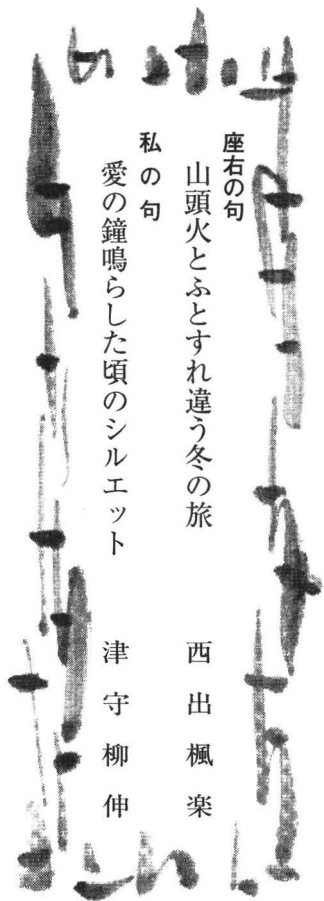 座右の句
山頭火とふとすれ違う冬の旅　西出楓楽
私の句
愛の鐘鳴らした頃のシルエット　津守柳伸